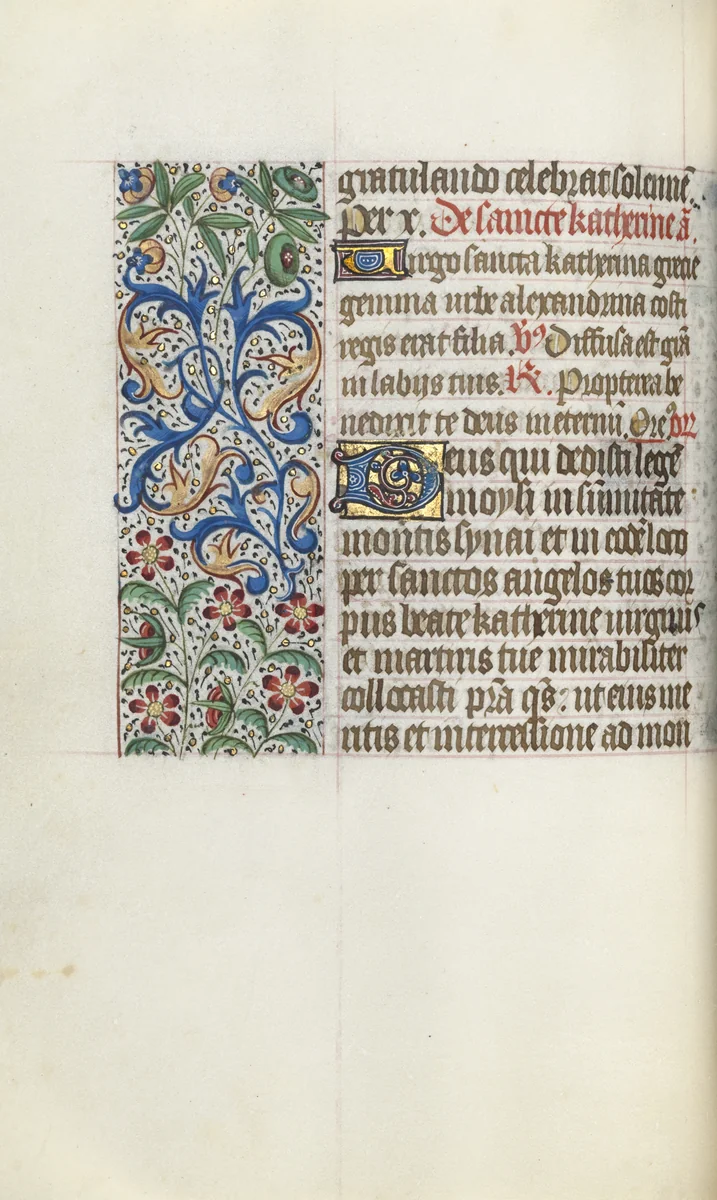 gratulando celebrat solenne͂.
per x. De sancte katherine a͂.
Uirgo sancta katherina grecie
gemma urbe alexandrina costi
regis erat filia. v͛9 Diffusa est gr͂a
in labijs tuis. R͛. Propterea be
nedixit te deus in eternu͂. Ore9 orr
Deus qui dedisti lege͂
moysi in su͂mitate
montis synai et in eode͂ loco
per sanctos angelos tuos cor
pus beate katherine uirginis
et martiris tue mirabiliter
collocasti pr͂a q͂s: ut eius me
ritis et intercessione ad mon